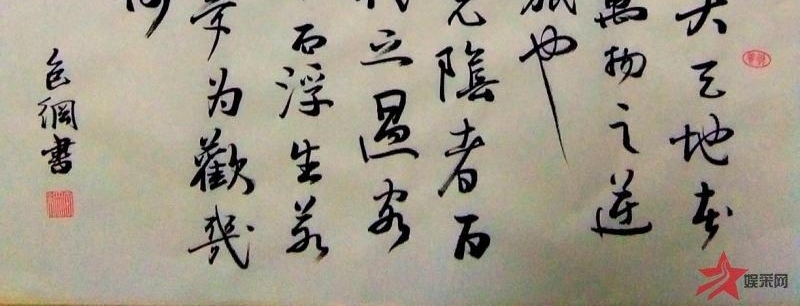 夫天地者
萬物之逆
旅也
光陰者百
代之過客
而浮生若
夢為歡幾
何
綱書
娱采网